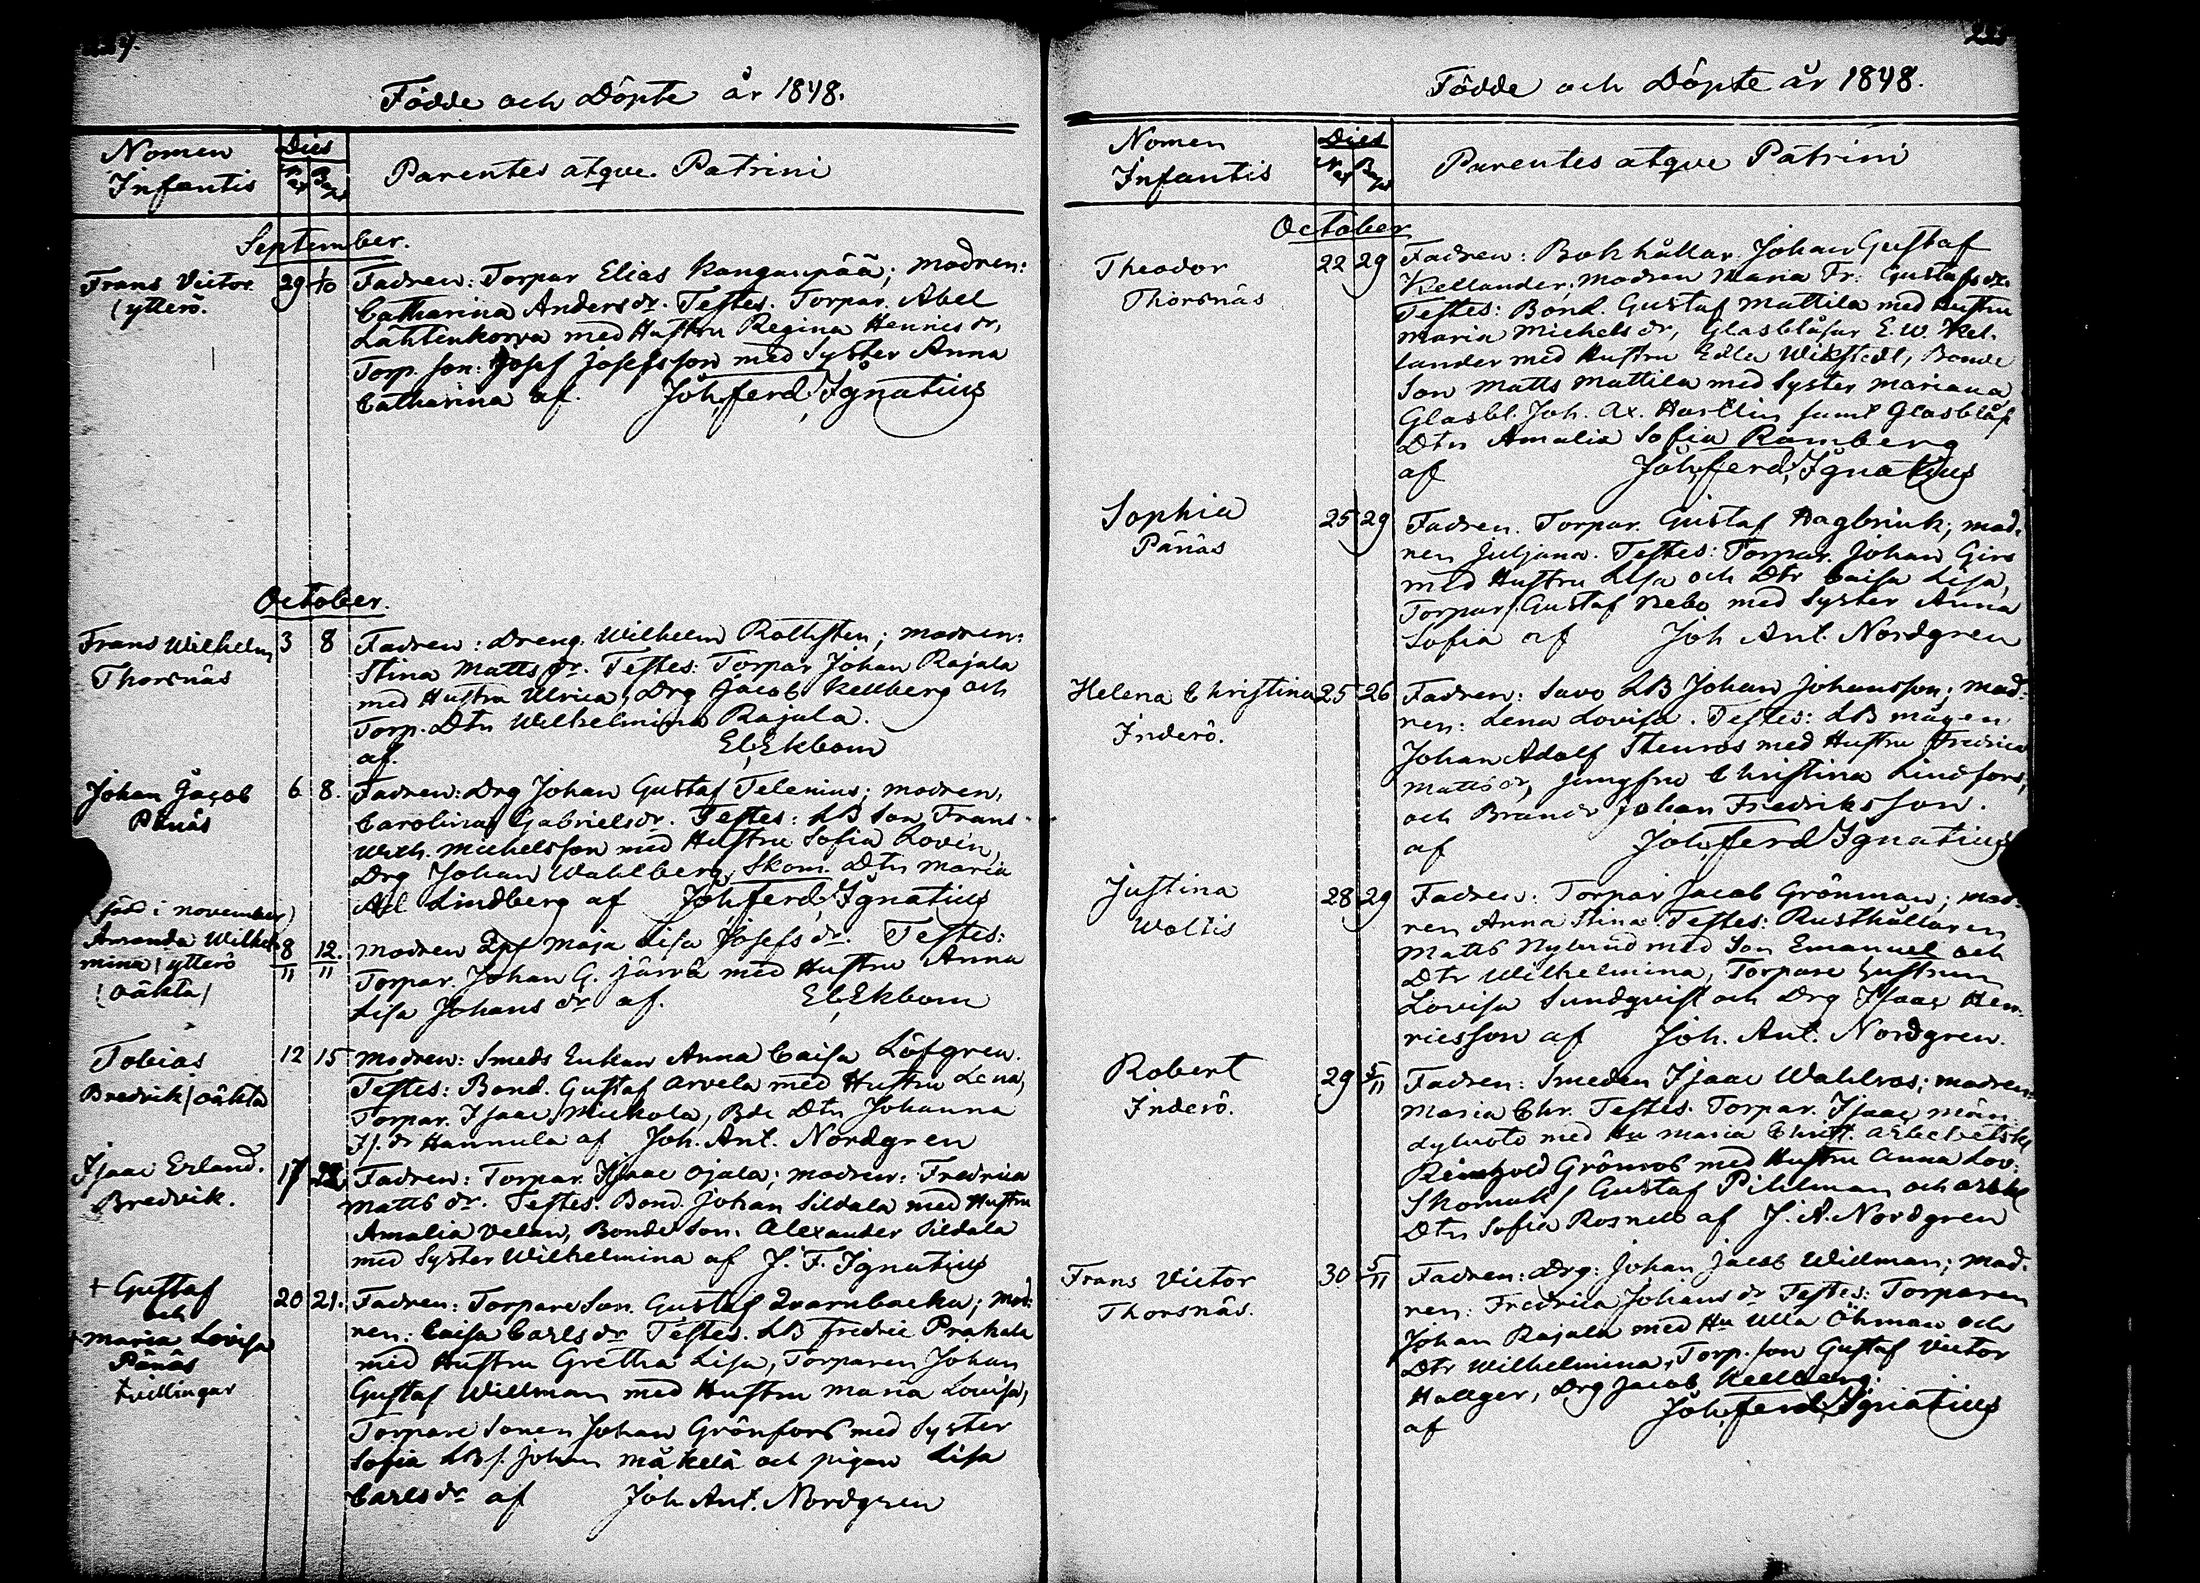 Födde och Döpte år 1848.
Nomen
Infantis
Dies
Nat
Bapt
Parentes atque Patrini
September.
Frans Victor
ytterö.
29 1/10
Fadren: Torpar Elias Kangaupää; modren:
Catharina Andersdr. Testes: Torpar. Abel
Lahtinkorva med Hustru Regina Henricsdr,
Torp. son: Josef Josefsson med Syster Anna
Catharina af. Joh. Ferd. Ignatius
October.
Frans Wilhelm
Thorsnäs
3 8
Fadren: Dreng. Wilhelm Rollsten; modren:
Stina Mattsdr. Testes: Torpar Johan Rajala
med Hustru Ulrica, Drg Jacob Kellberg och
Torp. Dtr Wilhelmina Rajala.
af. El. Ekbom
Johan Jacob
Pänäs
6 8.
Fadren: Drg Johan Gustaf Telenius; modren,
Carolina Gabrielsdr. Testes: LB Son Frans
Wilh. Michelsson med Hustru Sofia Lovin,
Drg Johan Wahlberg, Skom. Dtr Maria
Ad Lindberg af Joh. Ferd. Ignatius
(född i november)
Amanda Wilhel-
mina / ytterö
/ oäkta /
8/11 12./11
Modren Maja Lisa Josefsdr. Testes:
Torpar. Johan G. Järvä med Hustru Anna
Lisa Johansdr af. El. Ekbom
Tobias
Bredvik / oäkta
12 15
Modren: Smeds Enkan Anna Caisa Löfgren.
Testes: Bond. Gustaf Arvela med Hustru Lena,
Torpar. Isaac Mickola, Bde Dtr Johanna
Is. dr Hannula af Joh. Ant. Nordgren
Isaac Erland.
Bredvik.
17 22
Fadren: Torpar. Isaac Ojala; modren: Fredrica
Mattsdr. Testes. Bond. Johan Sildala med Hustru
Amalia Velin, Bonde Son. Alexander Sildala
med Syster Wilhelmina af J. F. Ignatius
+ Gustaf
och
+ Maria Lovisa
Pänäs
tvillingar
20 21.
Fadren: Torpare Son. Gustaf Qvarnbacka; mod-
ren: Caisa Carlsdr. Testes. LB Fredric Prakala
med Hustru Gretha Lisa, Torparen Johan
Gustaf Willman med Hustru Maria Lovisa,
Torpare Sonen Johan Grönfors med Syster
Sofia LBs. Johan Mäkelä och pigan Lisa
Carlsdr af Joh. Ant. Nordgren
Födde och Döpte år 1848.
Nomen
Infantis
Dies
Nat
Bapt
Parentes atque Patrini
October
Theodor
Thorsnäs
22 29
Fadren: Bokhållar. Johan Gustaf
Kellander, modren Maria Fr. Gustafsdr.
Testes: Bond. Gustaf Mattila med Hustru
Maria Michelsdr, Glasblåsar E. W. Kel-
lander med Hustru Edla Wikstedt, Bonde
Son Matts Mattila med Syster Mariana,
Glasbl. Joh. Ax. Hartlin samt Glasblås
Dtr Amalia Sofia Ramberg
af Joh. Ferd. Ignatius
Sophia
Pänäs
25 29
Fadren. Torpar. Gustaf Hagbrink; mod-
ren Juljana. Testes: Torpar. Johan Girs
med Hustru Lisa och Dtr Caisa Lisa,
Torpar. Gustaf Nebo med Syster Anna
Sofia af Joh Ant. Nordgren
Helena Christina
Inderö.
25 26
Fadren: Savo LB Johan Johansson; mod-
ren: Lena Lovisa. Testes: LB mågen
Johan Adolf Stenros med Hustru Fredrica
Mattsdr, jungfru Christina Lindfors,
och Brandr Johan Fredriksson.
af Joh. Ferd Ignatius
Justina
Woltis
28 29
Fadren: Torpar Jacob Grönman; mod-
ren Anna Stina. Testes: Rusthållaren
Matts Nylund med Son Emanuel och
Dtr Wilhelmina, Torpare Hustrun
Lovisa Sundqvist och Drg Isaac Hen-
ricsson af Joh. Ant. Nordgren.
Robert
Inderö.
29 5/11
Fadren: Smeden Isaac Wahlros; modren
Maria Chr. Testes. Torpar. Isaac
med Hu Maria Christ.
Reinhold Grönros med Hustru Anna Lov.
Skomak / Gustaf Pihlman och
Dtr Sofia Rosnell af J. A. Nordgren
Frans Victor
Thorsnäs.
30 5/11
Fadren: Drg. Johan Jacob Willman; mod-
ren: Fredrica Johansdr Testes: Torparen
Johan Rajala med Hu Ulla Öhman och
Dtr Wilhelmina, Torp. son Gustaf Victor
Hallger, Drg Jacob Kellberg.
af Joh. Ferd. Ignatius